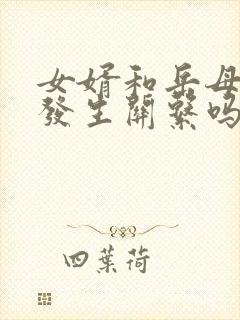 女婿和岳母
發生關繫吗
四葉荷